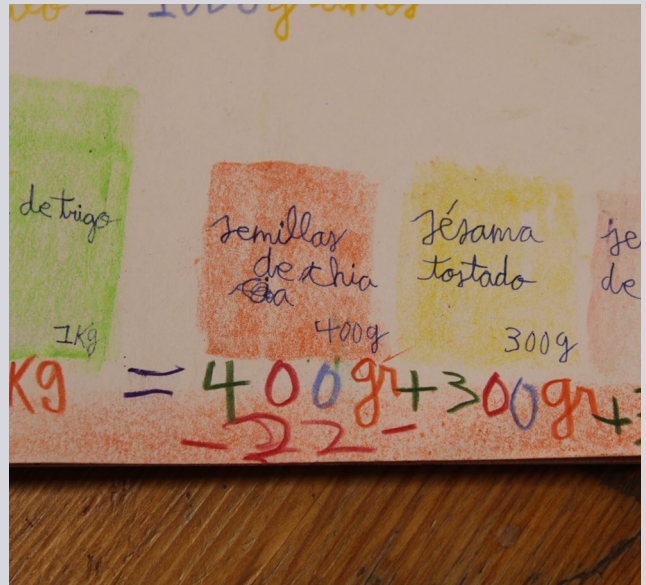 = 1000gramos
de trigo
1Kg
semillas
de chia
400g
sésama
tostado
300g
de
Kg = 400gr+300gr+3
-22-